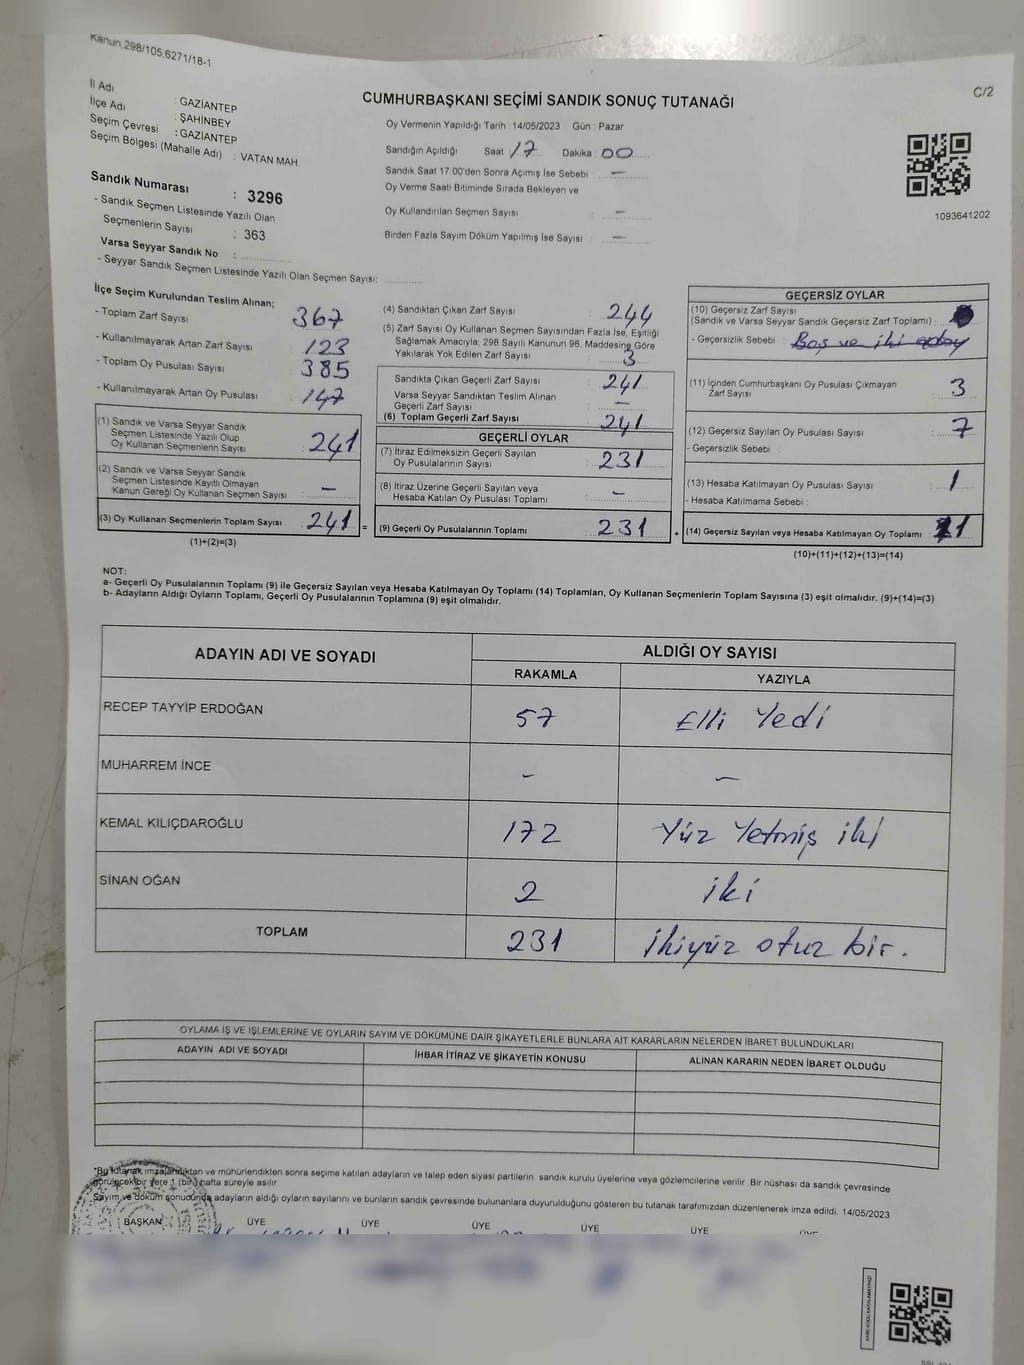 Kanun.298/105,6271/18-1
C/2
İl Adı : GAZİANTEP
İlçe Adı : ŞAHİNBEY
Seçim Çevresi : GAZİANTEP
Seçim Bölgesi (Mahalle Adı) : VATAN MAH.
Sandık Numarası : 3296
- Sandık Seçmen Listesinde Yazılı Olan
Seçmenlerin Sayısı : 363
Varsa Seyyar Sandık No :
- Seyyar Sandık Seçmen Listesinde Yazılı Olan Seçmen Sayısı:
CUMHURBAŞKANI SEÇİMİ SANDIK SONUÇ TUTANAĞI
Oy Vermenin Yapıldığı Tarih : 14/05/2023 Gün : Pazar
Sandığın Açıldığı Saat 17 Dakika : 00
Sandık Saat 17.00'den Sonra Açımış İse Sebebi : -
Oy Verme Saati Bitiminde Sırada Bekleyen ve
Oy Kullandırılan Seçmen Sayısı : -
Birden Fazla Sayım Döküm Yapılmış İse Sayısı : -
1093641202
İlçe Seçim Kurulundan Teslim Alınan;
- Toplam Zarf Sayısı : 367
- Kullanılmayarak Artan Zarf Sayısı : 123
- Toplam Oy Pusulası Sayısı : 385
- Kullanılmayarak Artan Oy Pusulası : 147
(1) Sandık ve Varsa Seyyar Sandık
Seçmen Listesinde Yazılı Olup
Oy Kullanan Seçmenlerin Sayısı : 241
(2) Sandık ve Varsa Seyyar Sandık
Seçmen Listesinde Kayıtlı Olmayan
Kanun Gereği Oy Kullanan Seçmen Sayısı : -
(3) Oy Kullanan Seçmenlerin Toplam Sayısı : 241 =
(1)+(2)=(3)
(4) Sandıktan Çıkan Zarf Sayısı : 244
(5) Zarf Sayısı Oy Kullanan Seçmen Sayısından Fazla İse, Eşitliği
Sağlamak Amacıyla, 298 Sayılı Kanunun 98. Maddesine Göre
Yakılarak Yok Edilen Zarf Sayısı : 3
Sandıkta Çıkan Geçerli Zarf Sayısı : 241
Varsa Seyyar Sandıktan Teslim Alınan
Geçerli Zarf Sayısı : -
(6) Toplam Geçerli Zarf Sayısı : 241
GEÇERLİ OYLAR
(7) İtiraz Edilmeksizin Geçerli Sayılan
Oy Pusulalarının Sayısı : 231
(8) İtiraz Üzerine Geçerli Sayılan veya
Hesaba Katılan Oy Pusulası Toplamı : -
(9) Geçerli Oy Pusulalarının Toplamı : 231 +
GEÇERSİZ OYLAR
(10) Geçersiz Zarf Sayısı
(Sandık ve Varsa Seyyar Sandık Geçersiz Zarf Toplamı) :
- Geçersizlik Sebebi : Boş ve iki aday
(11) İçinden Cumhurbaşkanı Oy Pusulası Çıkmayan
Zarf Sayısı : 3
(12) Geçersiz Sayılan Oy Pusulası Sayısı : 7
- Geçersizlik Sebebi :
(13) Hesaba Katılmayan Oy Pusulası Sayısı : 1
- Hesaba Katılmama Sebebi :
(14) Geçersiz Sayılan veya Hesaba Katılmayan Oy Toplamı : 11
(10)+(11)+(12)+(13)=(14)
NOT:
a- Geçerli Oy Pusulalarının Toplamı (9) ile Geçersiz Sayılan veya Hesaba Katılmayan Oy Toplamı (14) Toplamları, Oy Kullanan Seçmenlerin Toplam Sayısına (3) eşit olmalıdır. (9)+(14)=(3)
b- Adayların Aldığı Oyların Toplamı, Geçerli Oy Pusulalarının Toplamına (9) eşit olmalıdır.
ADAYIN ADI VE SOYADI ALDIĞI OY SAYISI
RAKAMLA YAZIYLA
RECEP TAYYİP ERDOĞAN 57 Elli Yedi
MUHARREM İNCE - -
KEMAL KILIÇDAROĞLU 172 Yüz Yetmiş iki
SİNAN OĞAN 2 iki
TOPLAM 231 ikiyüz otuz bir.
OYLAMA İŞ VE İŞLEMLERİNE VE OYLARIN SAYIM VE DÖKÜMÜNE DAİR ŞİKAYETLERLE BUNLARA AİT KARARLARIN NELERDEN İBARET BULUNDUKLARI
ADAYIN ADI VE SOYADI İHBAR İTİRAZ VE ŞİKAYETİN KONUSU ALINAN KARARIN NEDEN İBARET OLDUĞU
*Bu tutanak imzalandıktan ve mühürlendikten sonra seçime katılan adayların ve talep eden siyasi partilerin sandık kurulu üyelerine veya gözlemcilerine verilir. Bir nüshası da sandık çevresinde
görülecek bir yere 1 (bir) hafta süreyle asılır.
Sayım ve döküm sonucunda adayların aldığı oyların sayılarını ve bunların sandık çevresinde bulunanlara duyurulduğunu gösteren bu tutanak tarafımızdan düzenlenerek imza edildi. 14/05/2023
BAŞKAN ÜYE ÜYE ÜYE ÜYE ÜYE ÜYE